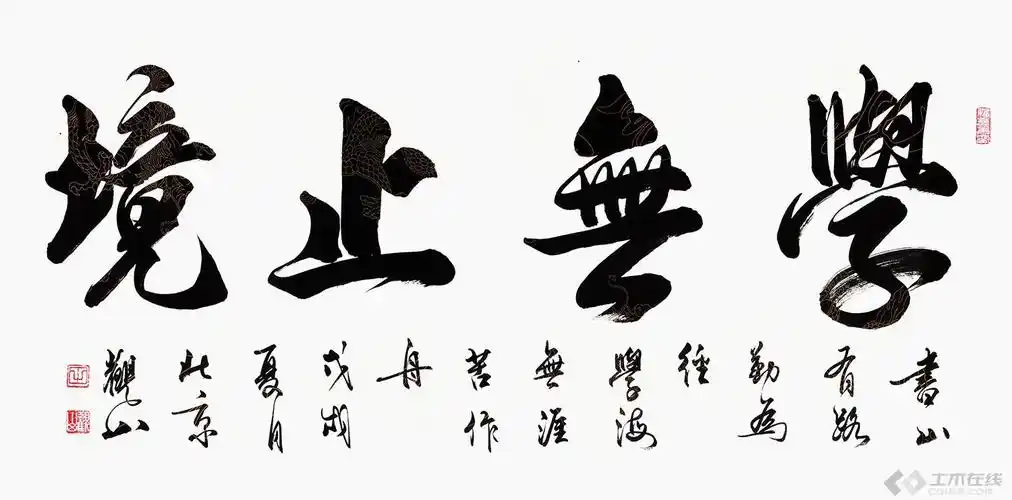 學無止境
書山
有路
勤為
徑
學海
無涯
苦作
舟
戊戌
夏月
北京
觀山
土木在线